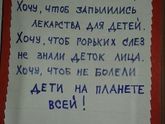 Хочу, чтоб запылились
лекарства для детей.
Хочу, чтоб горьких слез
не знали деток лица.
Хочу, чтоб не болели
дети на планете
всей!